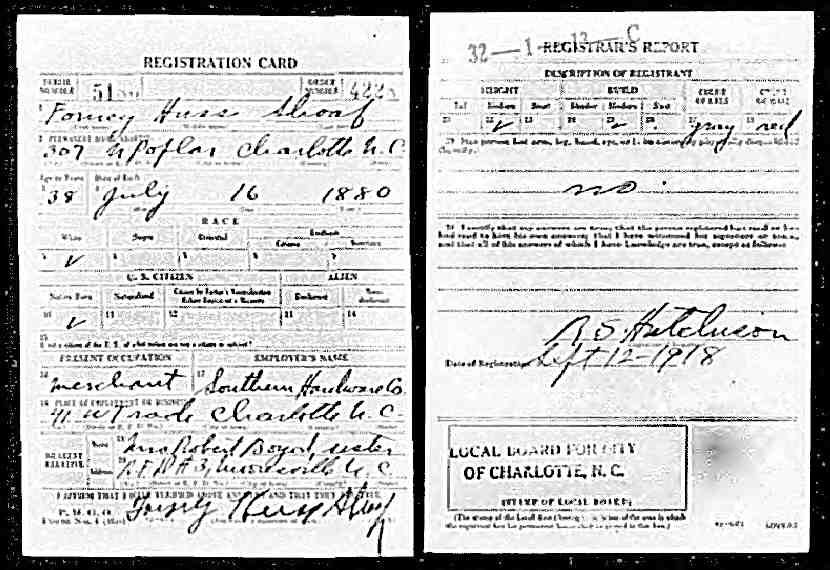 REGISTRATION CARD
SERIAL NUMBER 51
ORDER NUMBER
1 Forney Huss Shoaf
2 PERMANENT HOME ADDRESS
307 N Poplar Charlotte N.C.
Age in Years Date of Birth
38 July 16 1880
RACE
White Negro Oriental Indian
Citizen
U. S. CITIZEN ALIEN
Native Born Naturalized Citizen by Father's Naturalization Before Registrant's Majority Declarant Non-declarant
10 11 12 13 14
15
If not a citizen of the U. S. of what nation are you a citizen or subject?
PRESENT OCCUPATION EMPLOYER'S NAME
16 merchant 17 Southern Hardware Co
18 PLACE OF EMPLOYMENT OR BUSINESS
W Trade Charlotte N.C.
NEAREST RELATIVE
Name 19 Mrs Robert Boyd, sister
Address 20 R.F.D. #3, Mooresville N.C.
I AFFIRM THAT I HAVE VERIFIED ABOVE ANSWERS AND THAT THEY ARE TRUE
Forney Huss Shoaf
32—1—12—C
REGISTRAR'S REPORT
DESCRIPTION OF REGISTRANT
HEIGHT BUILD COLOR OF EYES COLOR OF HAIR
Tall Medium Short Slender Medium Stout
21 22 23 24 25 26 27 gray 28 red
29 Has person lost arm, leg, hand, eye, or is he obviously physically disqualified?
no.
30 I certify that my answers are true; that the person registered has read or has
had read to him his own answers; that I have witnessed his signature or mark,
and that all of his answers of which I have knowledge are true, except as follows:
R S Hutchison
Date of Registration Sept 12-1918
LOCAL BOARD FOR CITY
OF CHARLOTTE, N. C.
(STAMP OF LOCAL BOARD)
(The stamp of the Local Board having jurisdiction of the area in which
the registrant has his permanent home shall be placed in this box.)